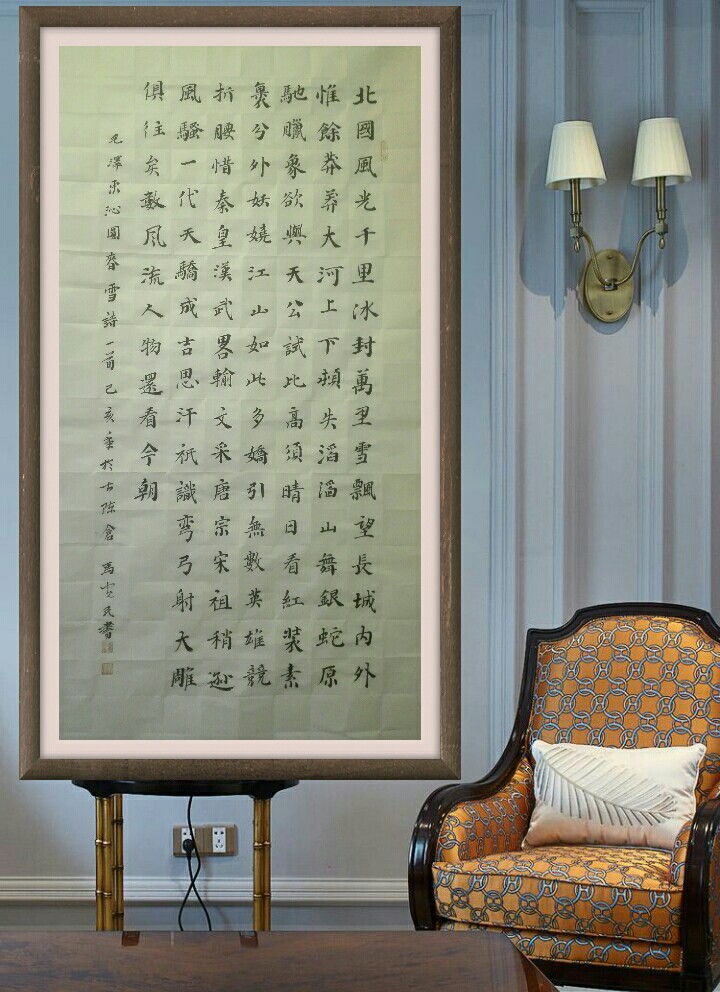 北國風光千里冰封萬里雪飄望長城内外
惟餘莽莽大河上下頓失滔滔山舞銀蛇原
馳臘象欲與天公試比高須晴日看紅裝素
裹分外妖嬈江山如此多嬌引無數英雄競
折腰惜秦皇漢武畧輸文采唐宗宋祖稍遜
風騷一代天驕成吉思汗祇識彎弓射大雕
俱往矣數风流人物還看今朝
毛澤東沁園春雪詩一首己亥年於古陈倉 馬民書